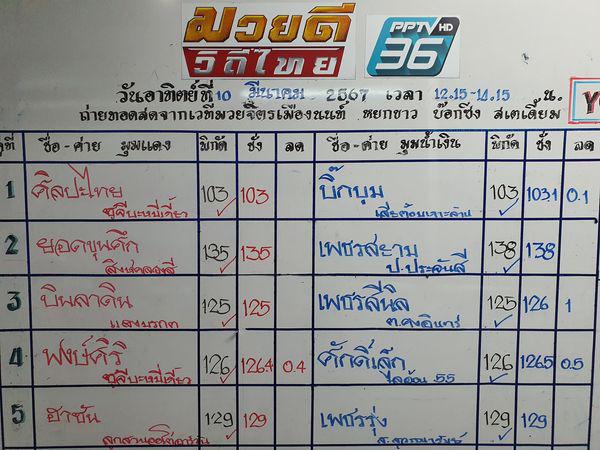 มวยดี
วิถีไทย
PPTV HD
36
วันอาทิตย์ที่ 10 มีนาคม 2567 เวลา 12.15-14.15 น.
ถ่ายทอดสดจากเวทีมวยจิตรเมืองนนท์ หยกขาว บ๊อกซิ่ง สเตเดี้ยม
คู่ที่ ชื่อ-ค่าย มุมแดง พิกัด ชั่ง ลด ชื่อ-ค่าย มุมน้ำเงิน พิกัด ชั่ง ลด
1 ศิลปะไทย 103 103 บิ๊กบูม 103 103.1 0.1
ซูจีบะหมี่เกี๊ยว เสี่ยต้อมเจาะล้าน
2 ยอดขุนศึก 135 135 เพชรสยาม 138 138
สิงห์คลองสี่ ป.ประจันสี
3 บินลาดิน 125 125 เพชรสีนิล 125 126 1
แสงมรกต
4 พงษ์ศิริ 126 126.4 0.4 ศักดิ์เล็ก 126 126.5 0.5
ซูจีบะหมี่เกี๊ยว 55
5 ฮาซัน 129 129 เพชรรุ่ง 129 129